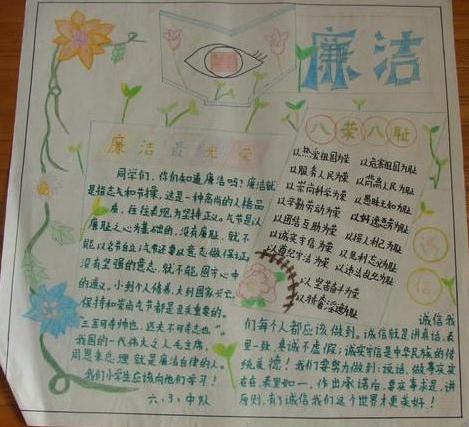 廉洁
廉洁最光荣
同学们,你们知道廉洁吗?廉洁就
是指志气和节操,这是一种高尚的人格品
质,在表现为坚持正义。气节是以
廉耻之心为基础的,没有廉耻,就不
能以名节自立;气节还要以意志做保证,
没有坚强的意志,就不能固守心中
的道义。小到个人储善,大到国家兴亡,
保持和崇尚气节都是至关重要的。
三军可夺帅也,匹夫不可夺志也"。
我国的一代伟大之人毛主席,
周恩来总理就是廉洁自律的人。
我们小学生应该向他们学习!
六、3、中队
八荣八耻
以热爱祖国为荣 以危害祖国为耻
以服务人民为荣 以背离人民为耻
以崇尚科学为荣 以愚昧无知为耻
以辛勤劳动为荣 以好逸恶劳为耻
以团结互助为荣 以损人利己为耻
以诚实守信为荣 以见利忘义为耻
以遵纪守法为荣 以违法乱纪为耻
以艰苦奋斗为荣
以骄奢淫逸为耻
诚
信
诚信我
们每个人都应该做到。诚信就是讲真话,表
里一致,真诚不虚假;诚实守信是中华民族的传
统美德!我们要努力做到:说话,做事实实
在在,表里如一,作出承诺后,要实事求是,讲
原则,有了诚信我们这个世界才更美好!